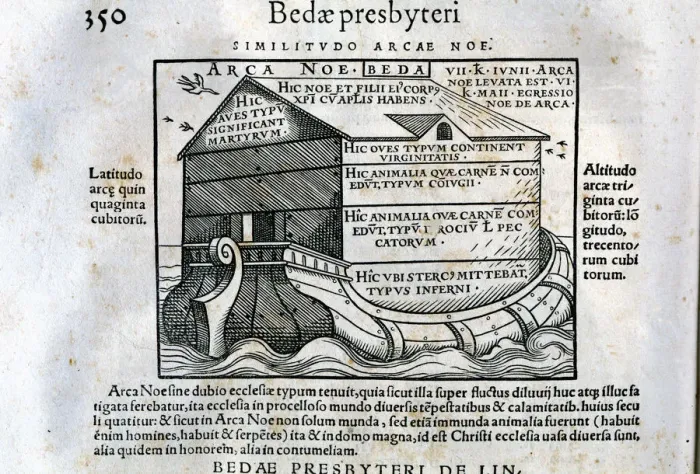 350 Bedæ presbyteri
SIMILITVDO ARCAE NOE.
ARCA NOE. BEDA
VII · K · IVNII · ARCA
NOE LEVATA EST · VI ·
K · MAII · EGRESSIO
NOE DE ARCA ·
HIC NOE ET FILII EI⁹ CORP⁹
XPI CV̄ APLIS HABENS ·
HIC
AVES TYPV̄
SIGNIFICANT
MARTYRVM ·
HIC OVES TYPVM CONTINENT
VIRGINITATIS ·
HIC ANIMALIA QVÆ CARNE N̄ COM
EDV̄T, TYPVM COIVGII ·
HIC ANIMALIA QVÆ CARNĒ COM
EDV̄T, PEC
CATORVM ·
HIC VBI STERC⁹ MITTEBAT̄,
TYPVS INFERNI ·
Latitudo
arcę quin
quaginta
cubitorū.
Altitudo
arcæ tri/
ginta cu/
bitorū: lō
gitudo,
trecento/
rum cubi
torum.
Arca Noe sine dubio ecclesiæ typum tenuit, quia sicut illa super fluctus diluuij huc atq; illuc fa
tigata ferebatur, ita ecclesia in procelloso mundo diuersis tēpestatibus & calamitatib. huius secu
li quatitur: & sicut in Arca Noe non solum munda, sed etiā immunda animalia fuerunt (habuit
énim homines, habuit & serpētes) ita & in domo magna, id est Christi ecclesia uasa diuersa sunt,
alia quidem in honorem, alia in contumeliam.
BEDAE PRESBYTERI DE LIN.